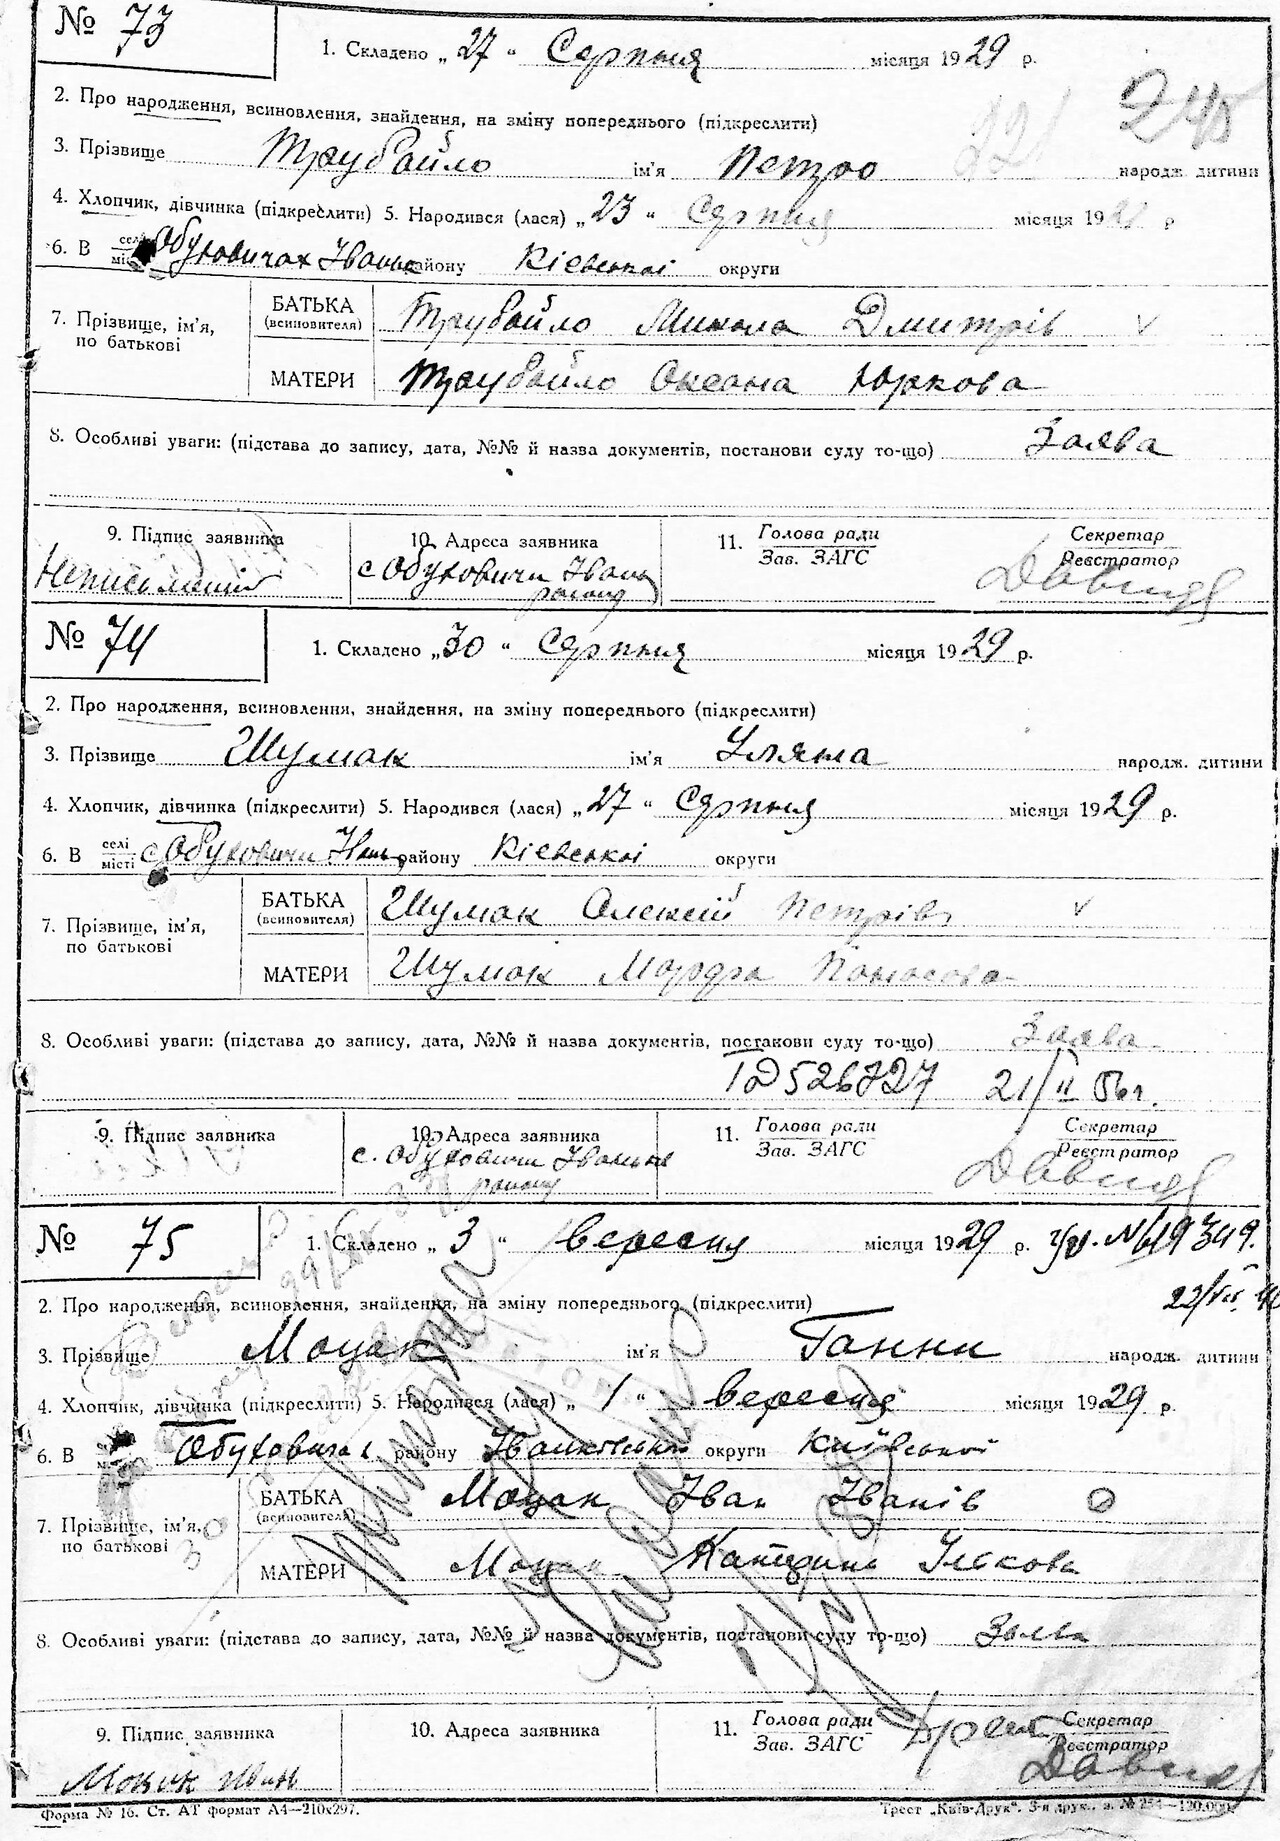 № 73
1. Складено „27“ Серпня місяця 1929 р.
240
221
2. Про народження, всиновлення, знайдення, на зміну попереднього (підкреслити)
3. Прізвище Трубайло ім'я Петро народж. дитини
4. Хлопчик, дівчинка (підкреслити) 5. Народився (лася) „23“ Серпня місяця 192 р
6. В селі місті Обуховичах Іванк району Кієвської округи
7. Прізвище, ім'я, по батькові
БАТЬКА (всиновителя) Трубайло Микола Дмитрів
МАТЕРИ Трубайло Оксана Юркова
8. Особливі уваги: (підстава до запису, дата, №№ й назва документів, постанови суду то-що) Заява
9. Підпис заявника
10. Адреса заявника
11. Голова ради Зав. ЗАГС
Секретар Реєстратор
с Обуховичи Іванк району
№ 74
1. Складено „30“ Серпня місяця 1929 р.
2. Про народження, всиновлення, знайдення, на зміну попереднього (підкреслити)
3. Прізвище Шумак ім'я Уляна народж. дитини
4. Хлопчик, дівчинка (підкреслити) 5. Народився (лася) „27“ Серпня місяця 1929 р.
6. В селі місті с Обуховичи Іван району Кієвської округи
7. Прізвище, ім'я, по батькові
БАТЬКА (всиновителя) Шумак Олексій Петрів
МАТЕРИ Шумак Марфа Панасова
8. Особливі уваги: (підстава до запису, дата, №№ й назва документів, постанови суду то-що) Заява
21/II 56г.
9. Підпис заявника
10. Адреса заявника
11. Голова ради Зав. ЗАГС
Секретар Реєстратор
с. Обуховичи Іванк району
№ 75
1. Складено „3“ вересня місяця 1929 р.
2. Про народження, всиновлення, знайдення, на зміну попереднього (підкреслити)
3. Прізвище Моцак ім'я Ганни народж. дитини
4. Хлопчик, дівчинка (підкреслити) 5. Народився (лася) „1“ вересня місяця 1929 р.
6. В Обуховичах району Іванківський округи Київської
7. Прізвище, ім'я, по батькові
БАТЬКА (всиновителя) Моцак Іван Іванів
МАТЕРИ Моцак Катерина
8. Особливі уваги: (підстава до запису, дата, №№ й назва документів, постанови суду то-що) Заява
9. Підпис заявника
10. Адреса заявника
11. Голова ради Зав. ЗАГС
Секретар Реєстратор
Форма № 16. Ст. АТ формат А4—210x297.
Трест „Київ-Друк“. 3-я друк., з. № 254—120.000.